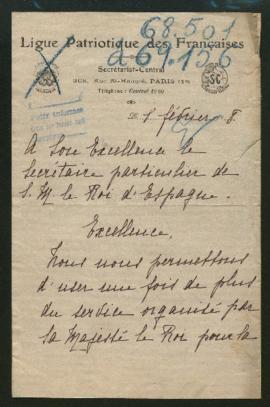 68.501
à 69.150
Ligue Patriotique des Françaises
Secrétariat-Central
368, Rue St-Honoré, PARIS
Téléphone: Central
SC
Le 1 février 8.
A Son Excellence le
Secrétaire particulier de
S. M. le Roi d'Espagne.
Excellence,
Nous nous permettons
d'user une fois de plus
du service organisé par
Sa Majesté le Roi pour la